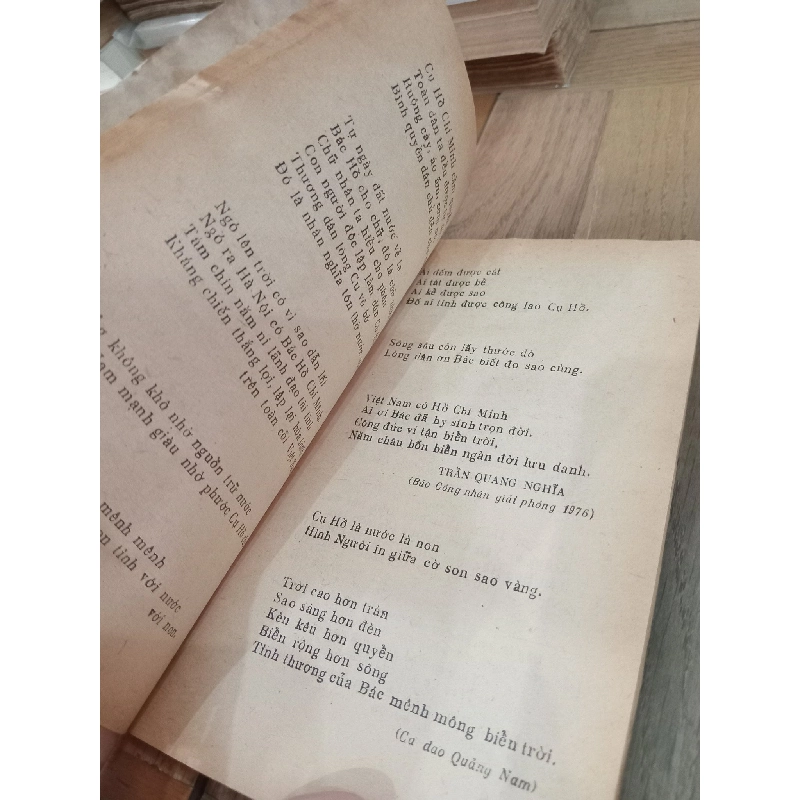 Cụ Hồ Chí Minh
Toàn dân ta đều được
Ruộng cày, áo ấm,
Bình quyền dân chủ đến
Tự ngày đất nước về ta
Bác Hồ cho chữ, đó là
Chữ nhân ta hiểu cho
Con người độc lập làm dân
Thương dân lòng Cụ vô
Đó là nhân nghĩa tồn thờ
Ngó lên trời có vì sao dẫn lối
Ngó ra Hà Nội có Bác Hồ Chí Minh
Tám chín năm ni lãnh đạo
Kháng chiến thắng lợi, lập lại
trên toàn cõi
không khô nhờ nguồn trữ nước
mạnh giàu nhờ phước Cụ Hồ
mênh mệnh
tình với nước
với non.
Ai đếm được cát
Ai tát được bể
Ai kể được sao
Đố ai tính được công lao Cụ Hồ.
Sông sâu còn lấy thước đo
Lòng dân ơn Bác biết đo sao cùng.
Việt Nam có Hồ Chí Minh
Ai vì Bác đã hy sinh trọn đời.
Công đức ví tận biển trời,
Năm châu bốn biển ngàn đời lưu danh.
TRẦN QUANG NGHĨA
(Báo Công nhân giải phóng 1976)
Cụ Hồ là nước là non
Hình Người in giữa cờ son sao vàng.
Trời cao hơn trán
Sao sáng hơn đèn
Kèn kêu hơn quyển
Biển rộng hơn sông
Tình thương của Bác mênh mông biển trời.
(Ca dao Quảng Nam)